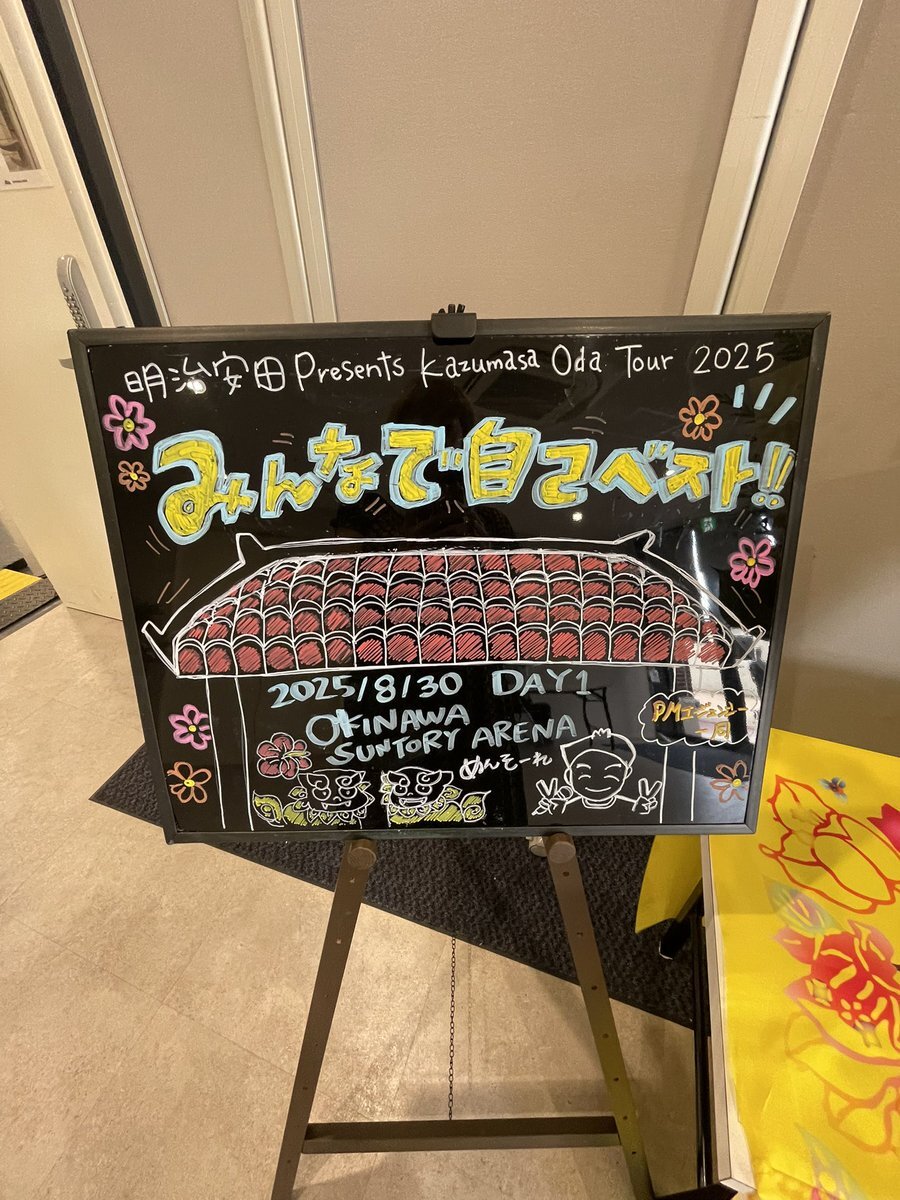 明治安田 Presents Kazumasa Oda Tour 2025
みんなで自己ベスト!!
2025/8/30 DAY1
OKINAWA
SUNTORY ARENA
めんそーれ
PMエージェンシー
一同